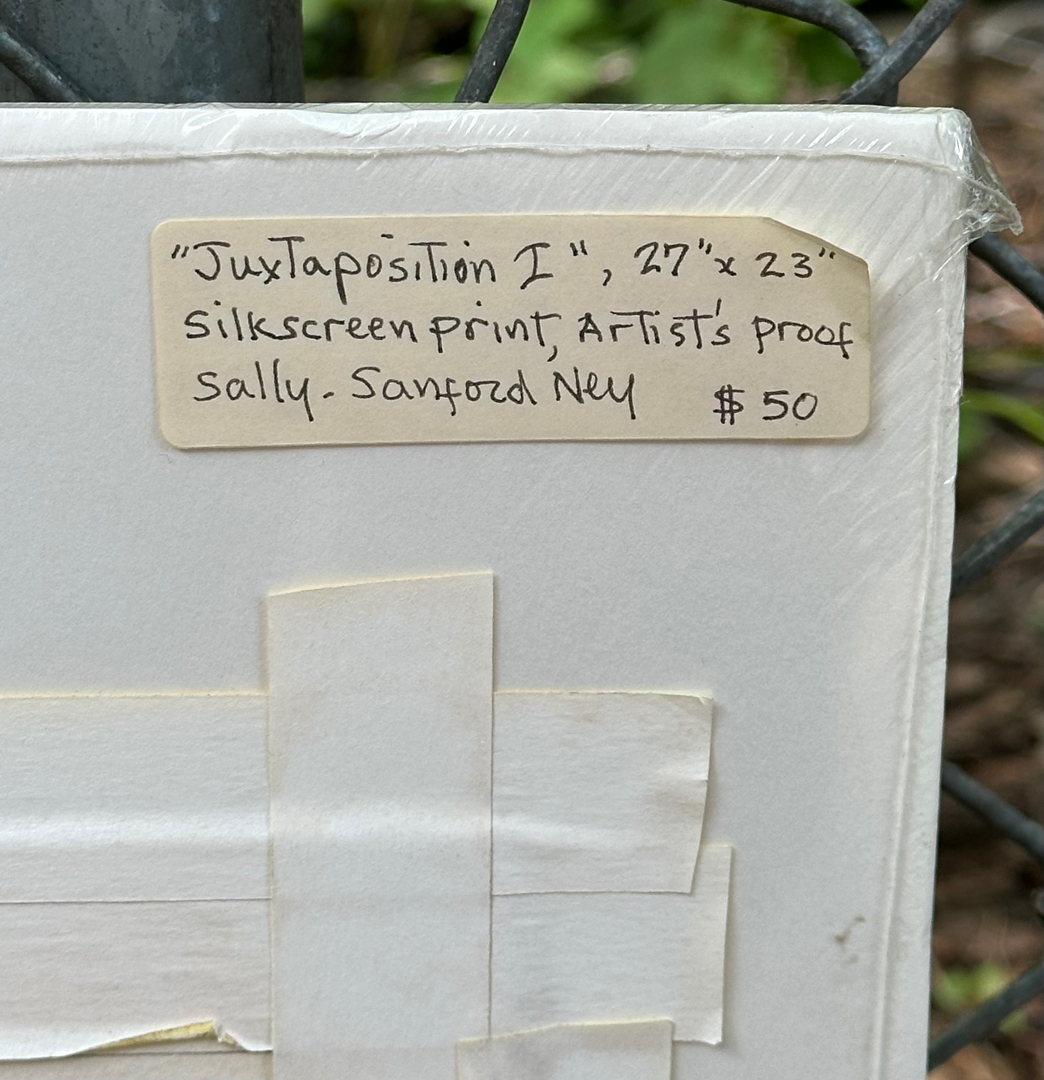 "Juxtaposition I", 27" x 23"
silkscreen print, Artist's proof
Sally-Sanford Ney $50